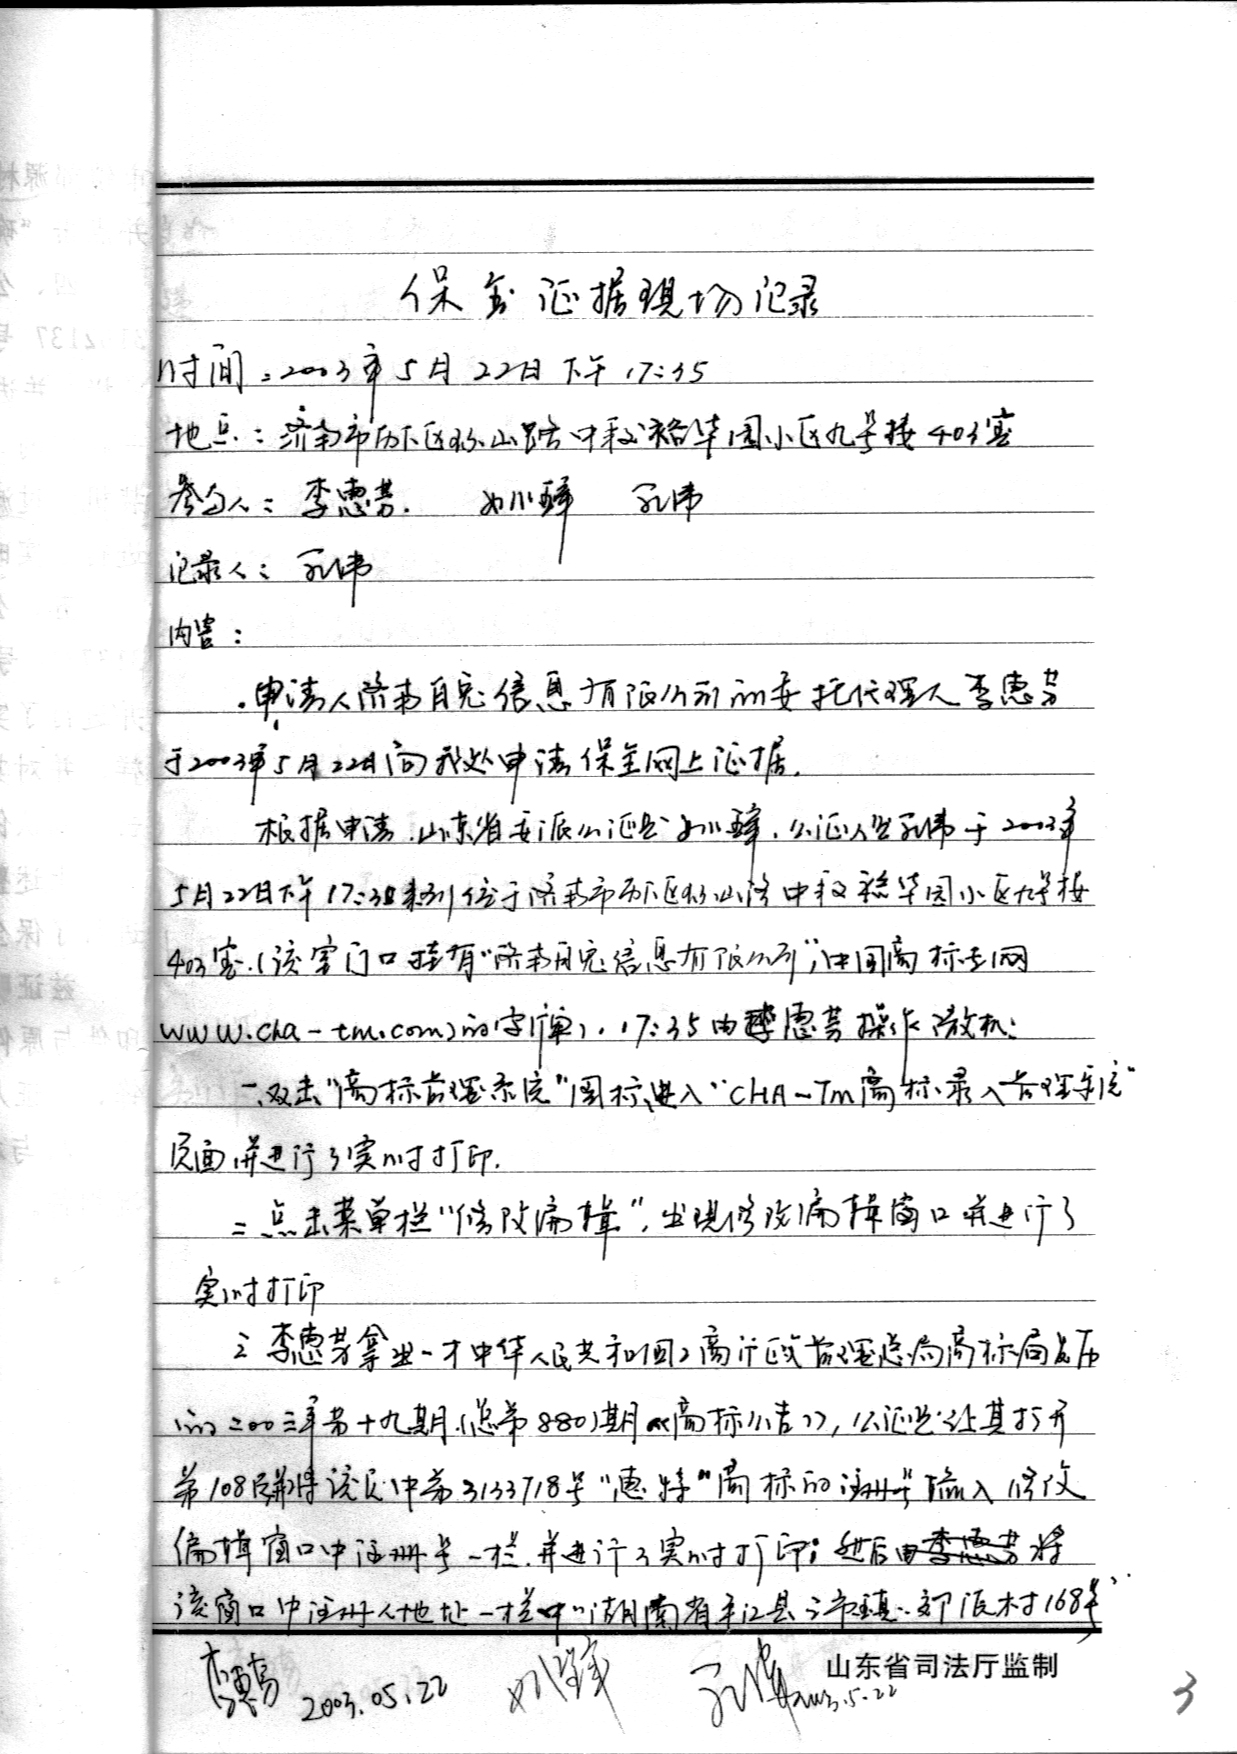 保全证据现场记录
时间:2003年5月22日下午17:35
地点:济南市历下区 山路中段裕华园小区九号楼403室
参与人:李惠芳. 孔伟
记录人:孔伟
内容:
申请人济南 信息有限公司的委托代理人李惠芳
于2003年5月22日向我处申请保全网上证据.
根据申请,山东省委派公证员 ,公证人员孔伟于2003年
5月22日下午17:30来到位于济南市历下区 山路中段裕华园小区九号楼
403室.(该室门口挂有"济南 信息有限公司","中国商标查网
www.cha-tm.com"的字牌),17:35由李惠芳操作微机:
一、双击"商标管理系统"图标,进入"CHA-Tm商标录入管理系统"
页面,并进行了实时打印.
二、点击菜单栏"修改编辑",出现修改编辑窗口并进行了
实时打印
三 李惠芳拿出一本中华人民共和国工商行政管理总局商标局发布
的二00三年第十九期(总第880)期《商标公告》,公证员让其打开
第108页并将该页中第3133718号"惠特"商标的注册号输入修改
编辑窗口中注册号一栏.并进行了实时打印;然后由李惠芳将
该窗口中注册人地址一栏中"湖南省平江县三市镇 郊源村168号"
李惠芳 2003.05.22 孔伟 2003.5.22
山东省司法厅监制
3